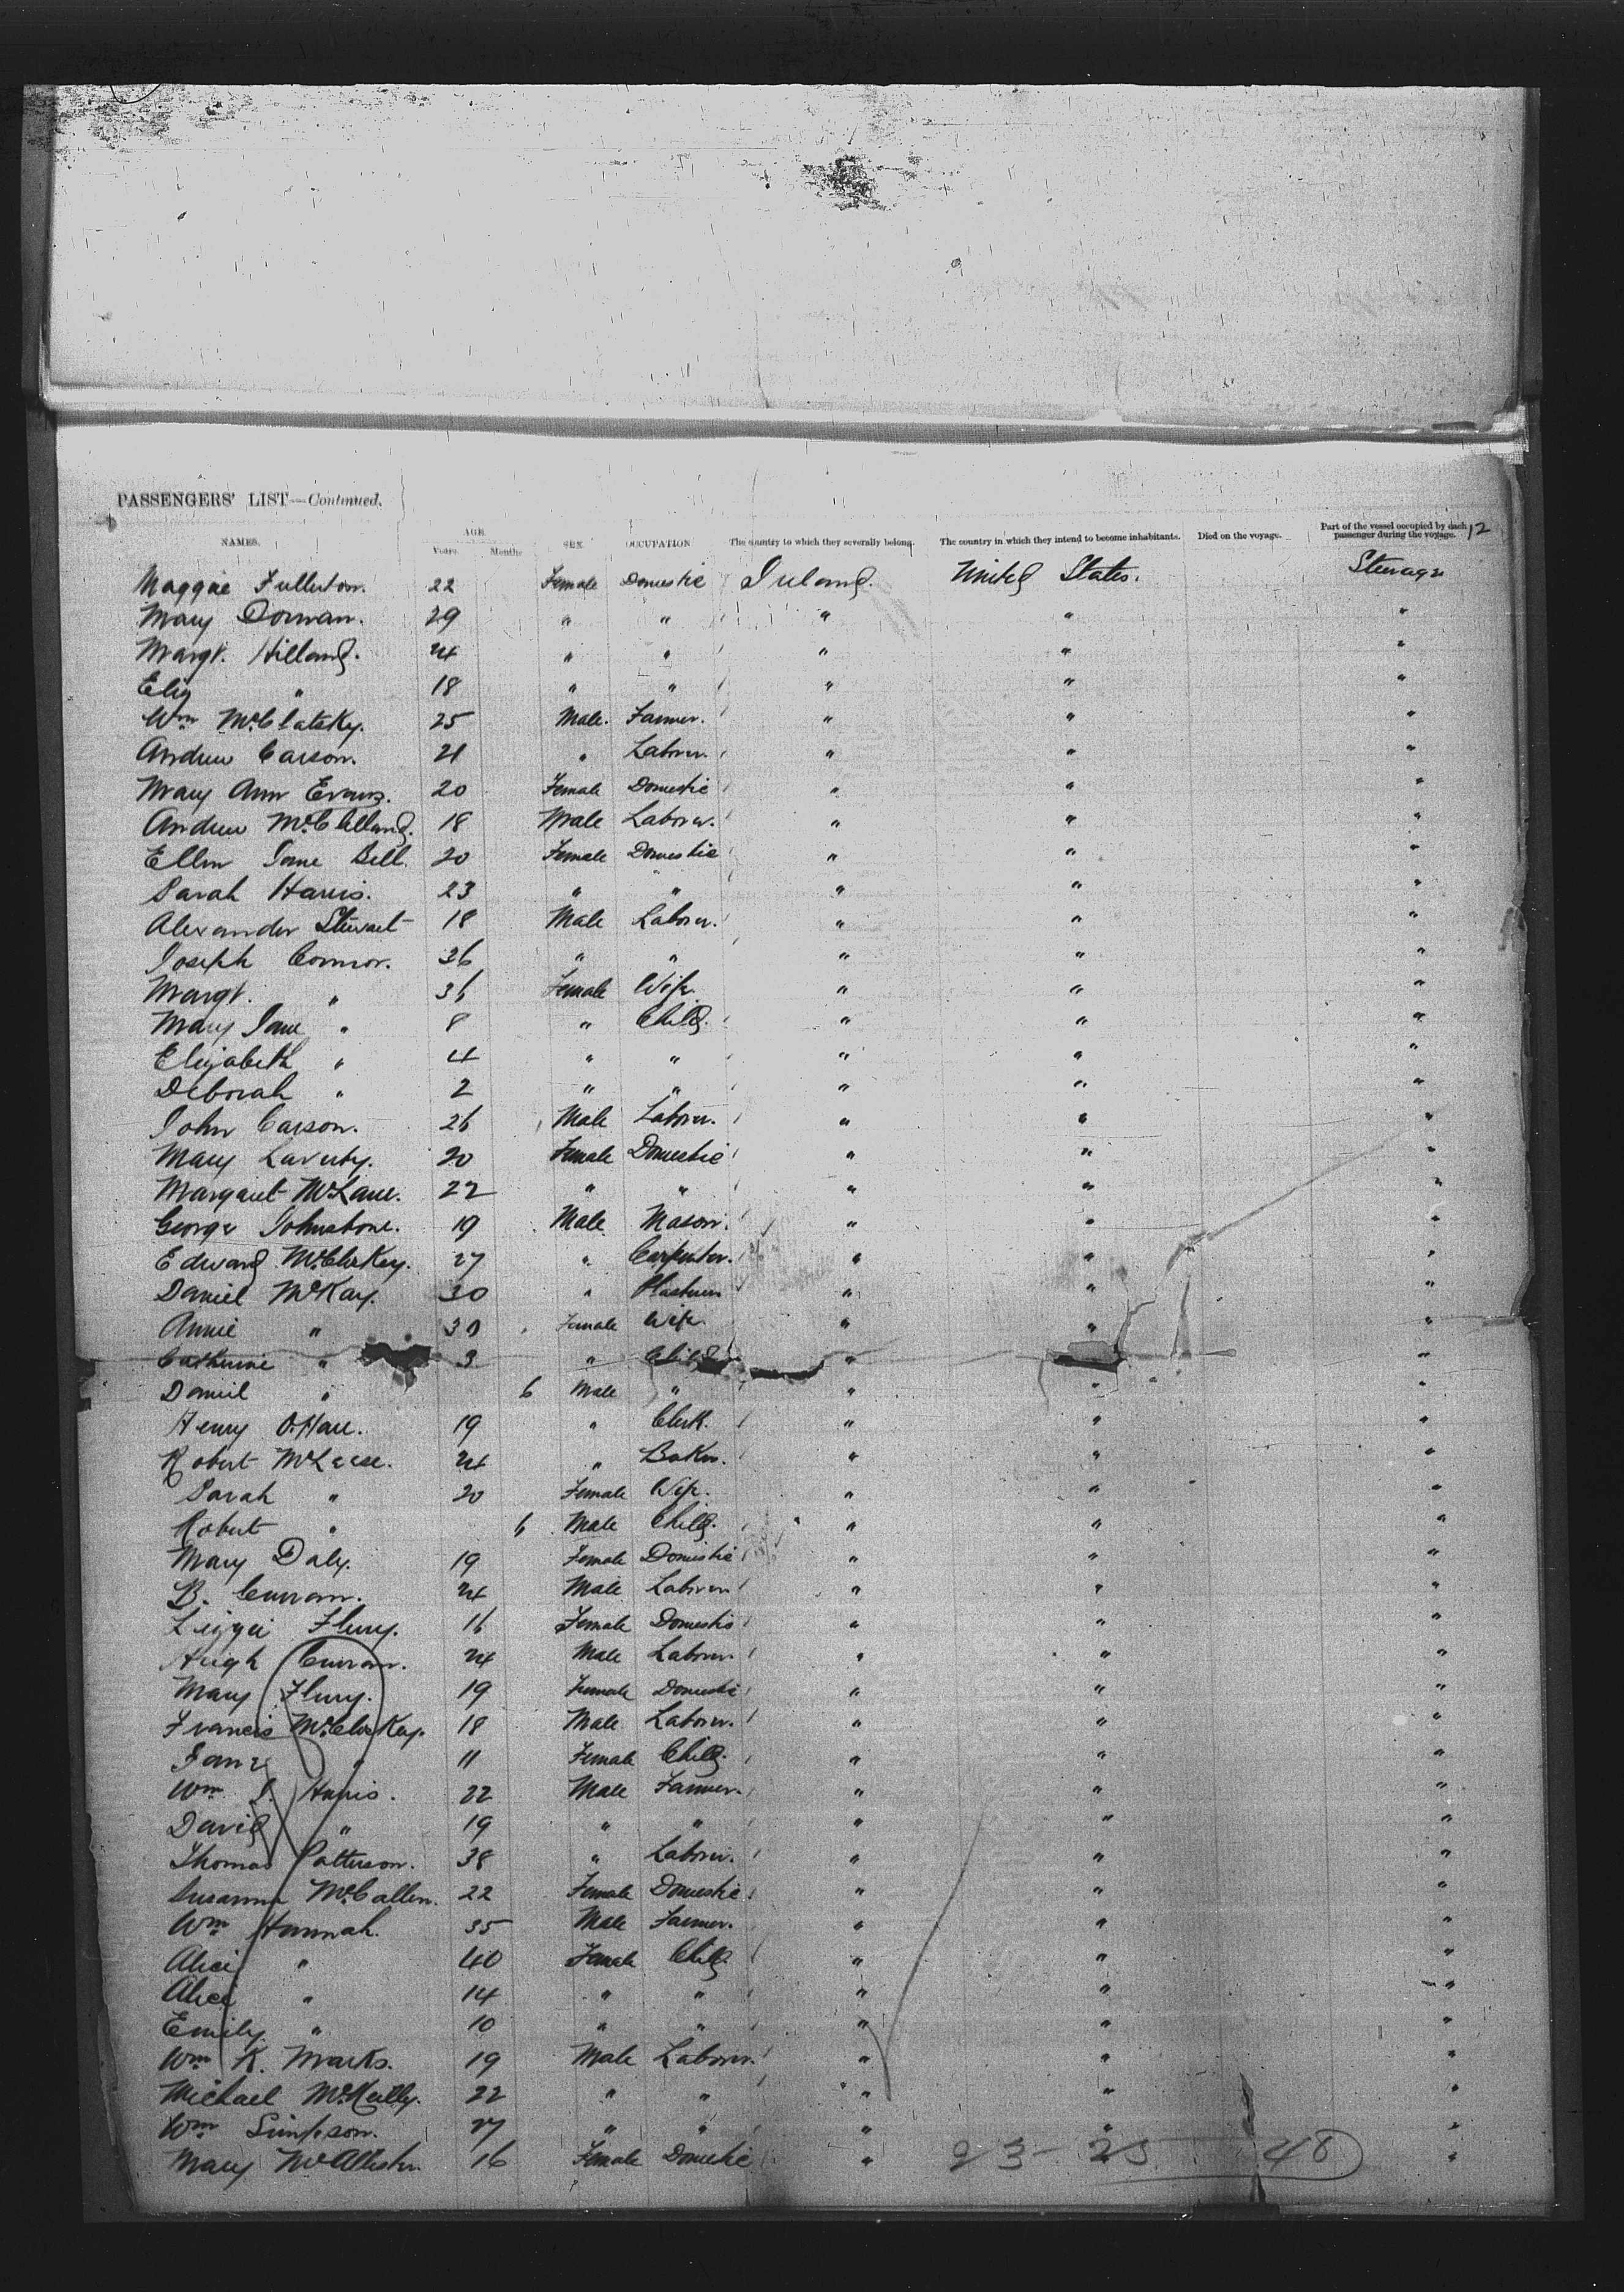 PASSENGERS' LIST—Continued.
12
NAMES. AGE. Years. Months. SEX. OCCUPATION The country to which they severally belong. The country in which they intend to become inhabitants. Died on the voyage. Part of the vessel occupied by each passenger during the voyage.
Maggie Fullerton. 22 Female Domestic Ireland. United States. Steerage
Mary Dornan. 29 " " " " "
Margt. Hilland. 24 " " " " "
Eliz " 18 " " " " "
Wm McClatsky. 25 Male. Farmer. " " "
Andrew Carson. 21 " Laborer. " " "
Mary Ann Evans. 20 Female Domestic " " "
Andrew McClelland. 18 Male Laborer. " " "
Ellen Jane Bell. 20 Female Domestic " " "
Sarah Harris. 23 " " " " "
Alexander Stewart 18 Male Laborer. " " "
Joseph Connor. 36 " " " " "
Margt. " 36 Female Wife. " " "
Mary Jane " 8 " Child. " " "
Elizabeth " 4 " " " " "
Deborah " 2 " " " " "
John Carson. 26 Male Laborer. " " "
Mary Laverty. 20 Female Domestic " " "
Margaret McLane. 22 " " " " "
George Johnstone. 19 Male Mason. " " "
Edward McCloskey. 27 " Carpenter. " " "
Daniel McKay. 30 " Plasterer " " "
Annie " 30 Female Wife. " " "
Catherine " 3 " Child " "
Daniel " 6 Male " " " "
Henry O.Hare. 19 " Clerk. " " "
Robert McLeese. 24 " Baker. " " "
Sarah " 20 Female Wife. " " "
Robert " 6 Male Child. " " "
Mary Daly. 19 Female Domestic " " "
B. Curran. 24 Male Laborer " " "
Lizzie Flury. 16 Female Domestic " " "
Hugh Curran. 24 Male Laborer " " "
Mary Flury. 19 Female Domestic " " "
Francis McCloskey. 18 Male Laborer. " " "
Jane " 11 Female Child. " " "
Wm J. Harris. 22 Male Farmer. " " "
David " 19 " " " " "
Thomas Patterson. 38 " Laborer. " " "
Susanna McCallen. 22 Female Domestic " " "
Wm Hannah. 35 Male Farmer. " " "
Alice " 40 Female Child " " "
Alice " 14 " " " " "
Emily " 10 " " " " "
Wm K. Marks. 19 Male Laborer. " " "
Michael McKelly. 22 " " " " "
Wm Simpson. 27 " " " " "
Mary McAllister. 16 Female Domestic " "
23 - 25 48